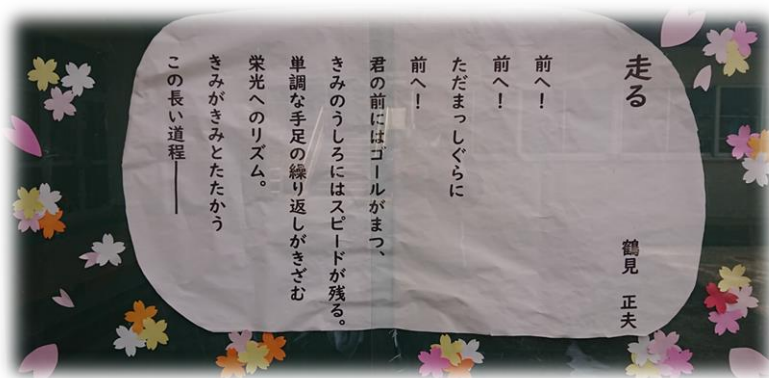 走る
鶴見 正夫
前へ!
前へ!
ただまっしぐらに
前へ!
君の前にはゴールがまつ、
きみのうしろにはスピードが残る。
単調な手足の繰り返しがきざむ
栄光へのリズム。
きみがきみとたたかう
この長い道程───